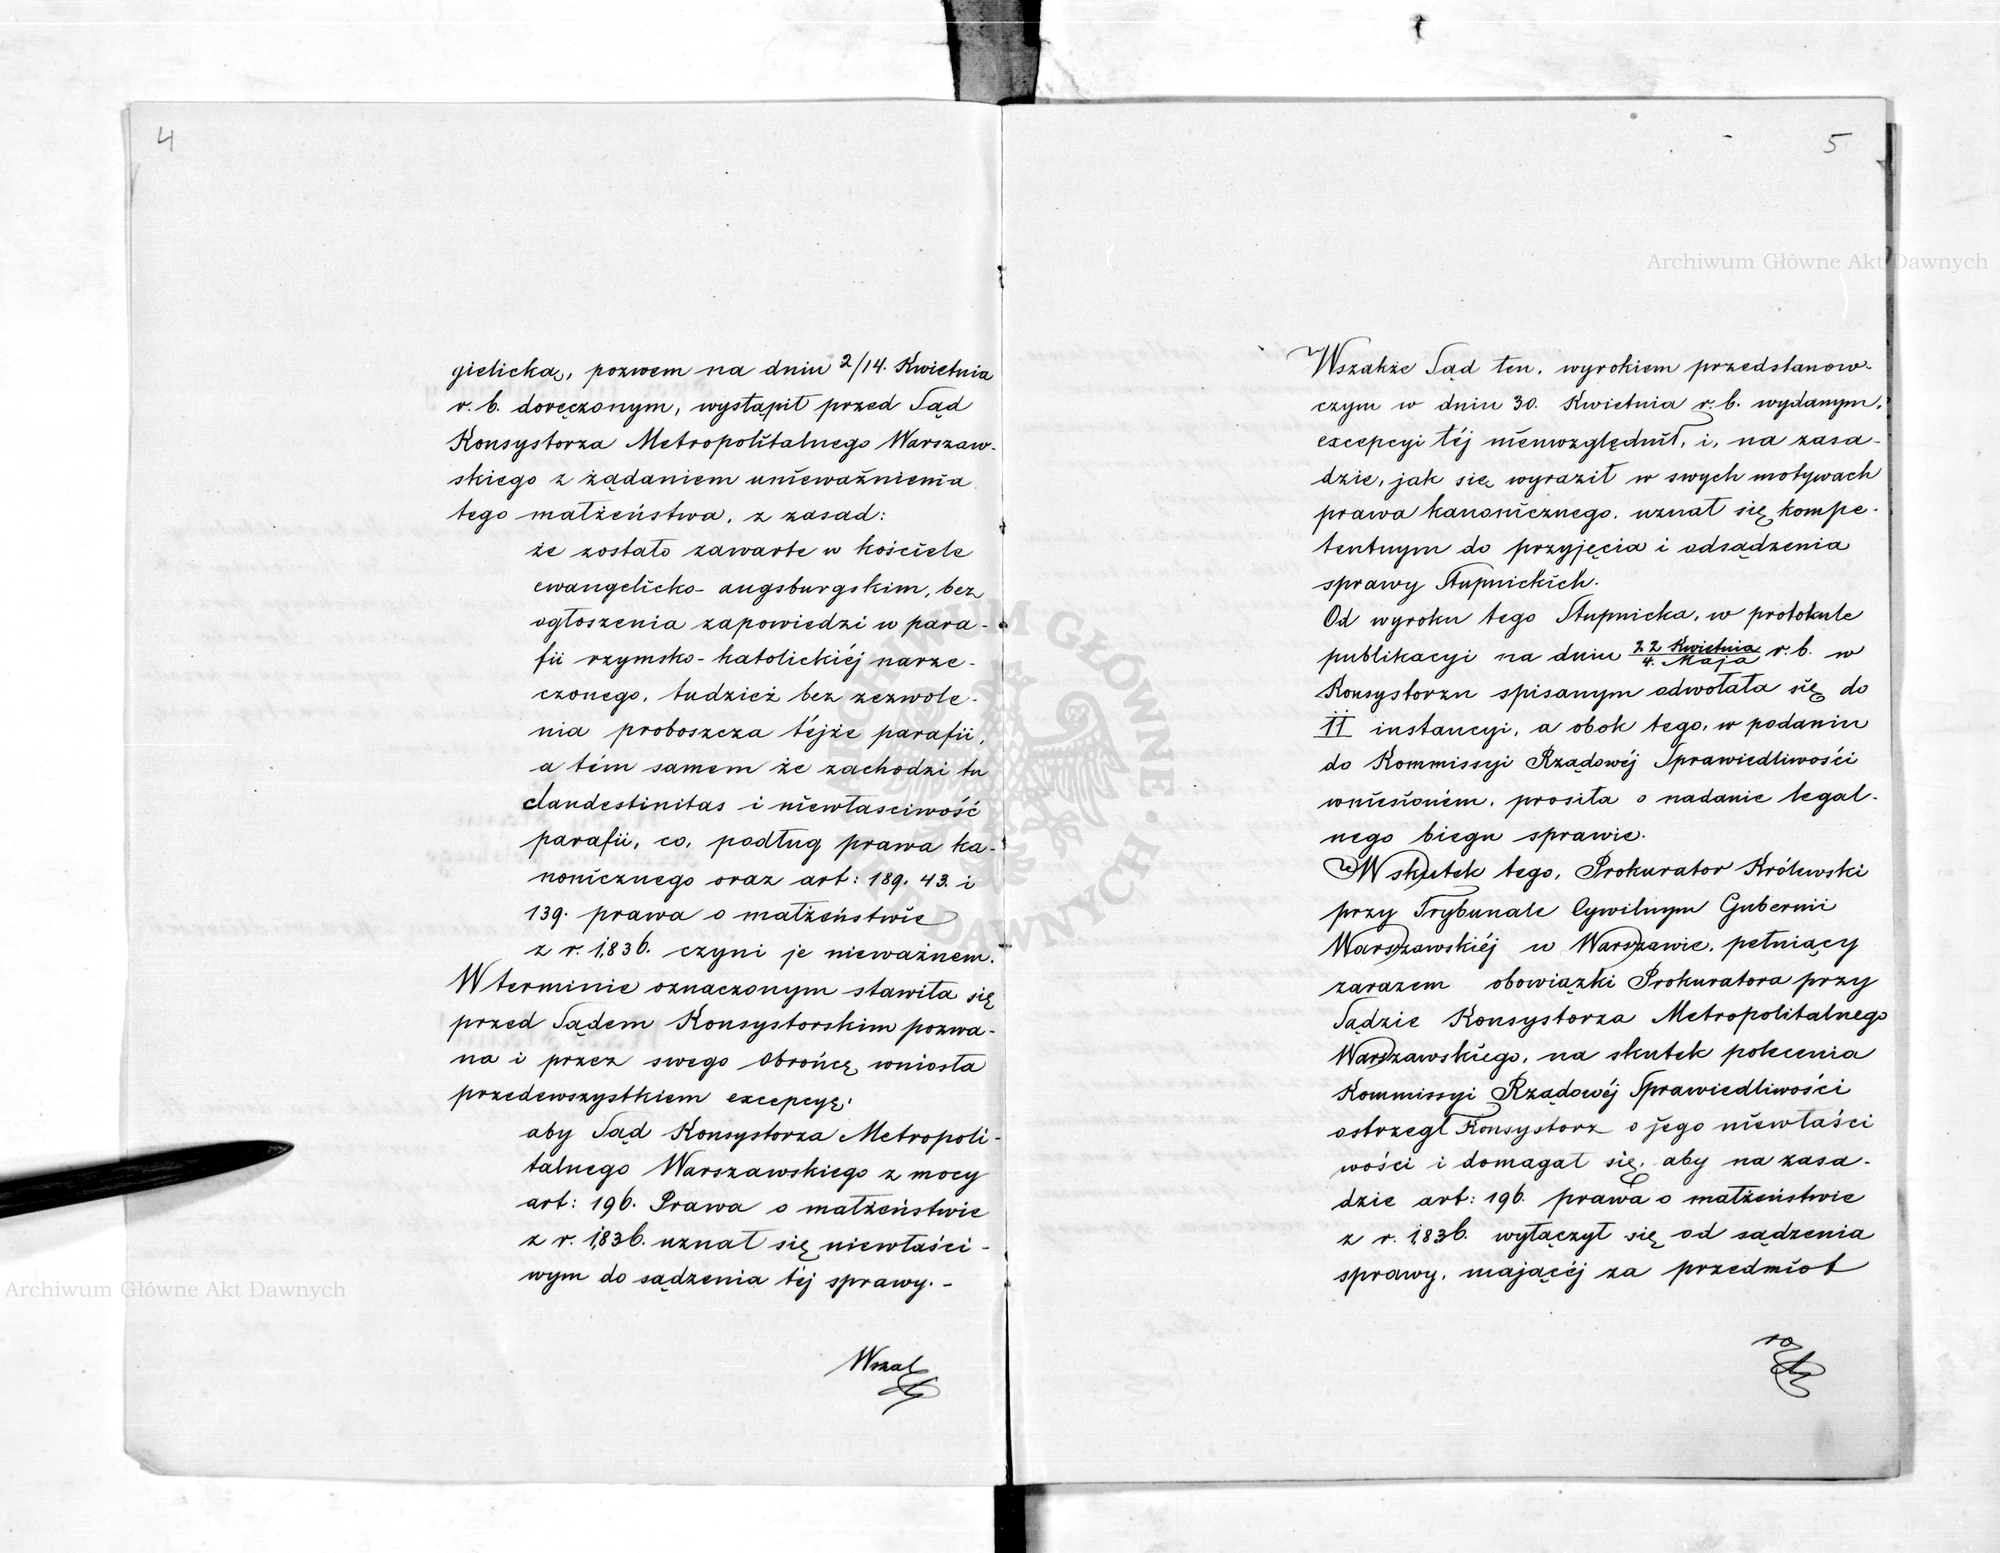 4
gielicką, pozwem na dniu 2/14. Kwietnia
r. b. doręczonym, wystąpił przed Sąd
Konsystorza Metropolitalnego Warszaw-
skiego z żądaniem unieważnienia
tego małżeństwa, z zasad:
że zostało zawarte w kościele
ewangelicko-augsburgskim, bez
ogłoszenia zapowiedzi w para-
fii rzymsko-katolickiéj narze-
czonego, tudzież bez zezwole-
nia proboszcza téjże parafii,
a tém samem że zachodzi tu
clandestinitas i niewłasciwość
parafii, co, podług prawa ka-
nonicznego oraz art: 189. 43. i
139. prawa o małżeństwie
z r. 1,836. czyni je nieważnem.
W terminie oznaczonym stawiła się
przed Sądem Konsystorskim pozwa-
na i przez swego Obrońcę wniosła
przedewszystkiem excepcyę:
aby Sąd Konsystorza Metropoli-
talnego Warszawskiego z mocy
art: 196. Prawa o małżeństwie
z r. 1,836. uznał się niewłaści-
wym do sądzenia téj sprawy. -
Wszak
5
Wszakże Sąd ten, wyrokiem przedstanow-
czym w dniu 30. Kwietnia r. b. wydanym,
excepcyi téj nieuwzględnił, i, na zasa-
dzie, jak się wyraził w swych motywach
prawa kanonicznego, uznał się kompe-
tentnym do przyjęcia i odsądzenia
sprawy Słupnickich.
Od wyroku tego Słupnicka, w protokule
publikacyi na dniu 22 Kwietnia/4. Maja r. b. w
Konsystorzu spisanym odwołała się do
II instancyi, a obok tego, w podaniu
do Kommissyi Rządowéj Sprawiedliwości
wniesioném, prosiła o nadanie legal-
nego biegu sprawie.
W skutek tego, Prokurator Królewski
przy Trybunale Cywilnym Gubernii
Warszawskiéj w Warszawie, pełniący
zarazem obowiązki Prokuratora przy
Sądzie Konsystorza Metropolitalnego
Warszawskiego, na skutek polecenia
Kommissyi Rządowéj Sprawiedliwości
ostrzegł Konsystorz o jego niewłaści
wości i domagał się, aby na zasa-
dzie art: 196. prawa o małżeństwie
z r. 1836. wyłączył się od sądzenia
sprawy, mającéj za przedmiot
Archiwum Główne Akt Dawnych
Archiwum Główne Akt Dawnych